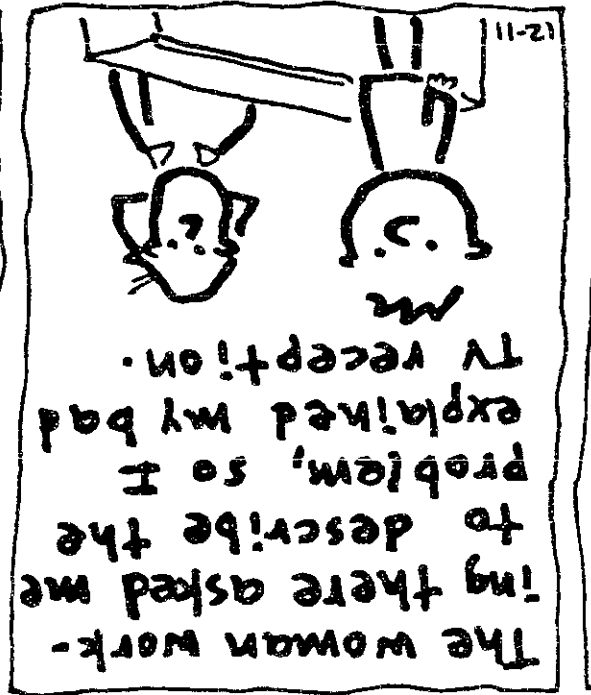 The woman work-
ing there asked me
to describe the
problem, so I
explained my bad
TV reception.
11-21